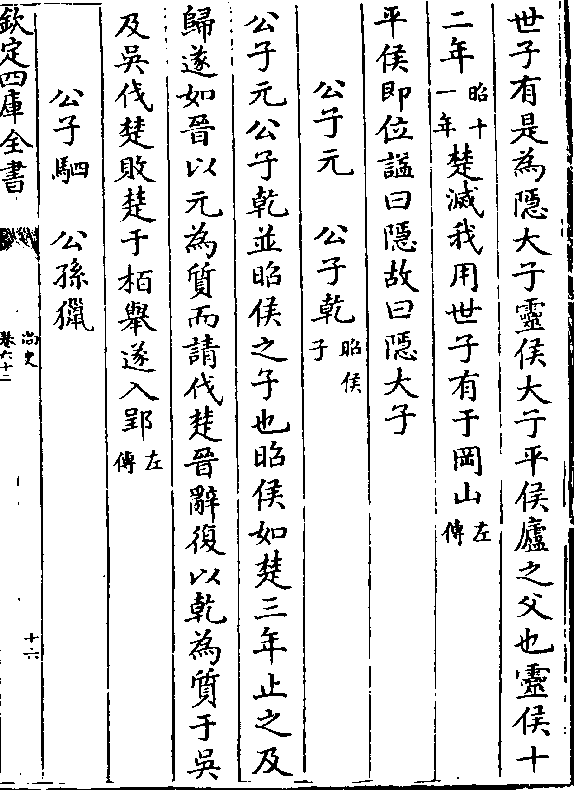 世子有是為隱大子靈侯大子平侯廬之父也靈侯十
二年昭十一年楚滅我用世子有于岡山左傳
平侯即位諡曰隱故曰隱大子
公子元 公子乾昭侯子
公子元公子乾並昭侯之子也昭侯如楚三年止之及
歸遂如晉以元為質而請伐楚晉辭復以乾為質于吳
及吳伐楚敗楚于栢舉遂入郢左傳
公子駟 公孫獵
欽定四庫全書
尚史
卷六十二
十六